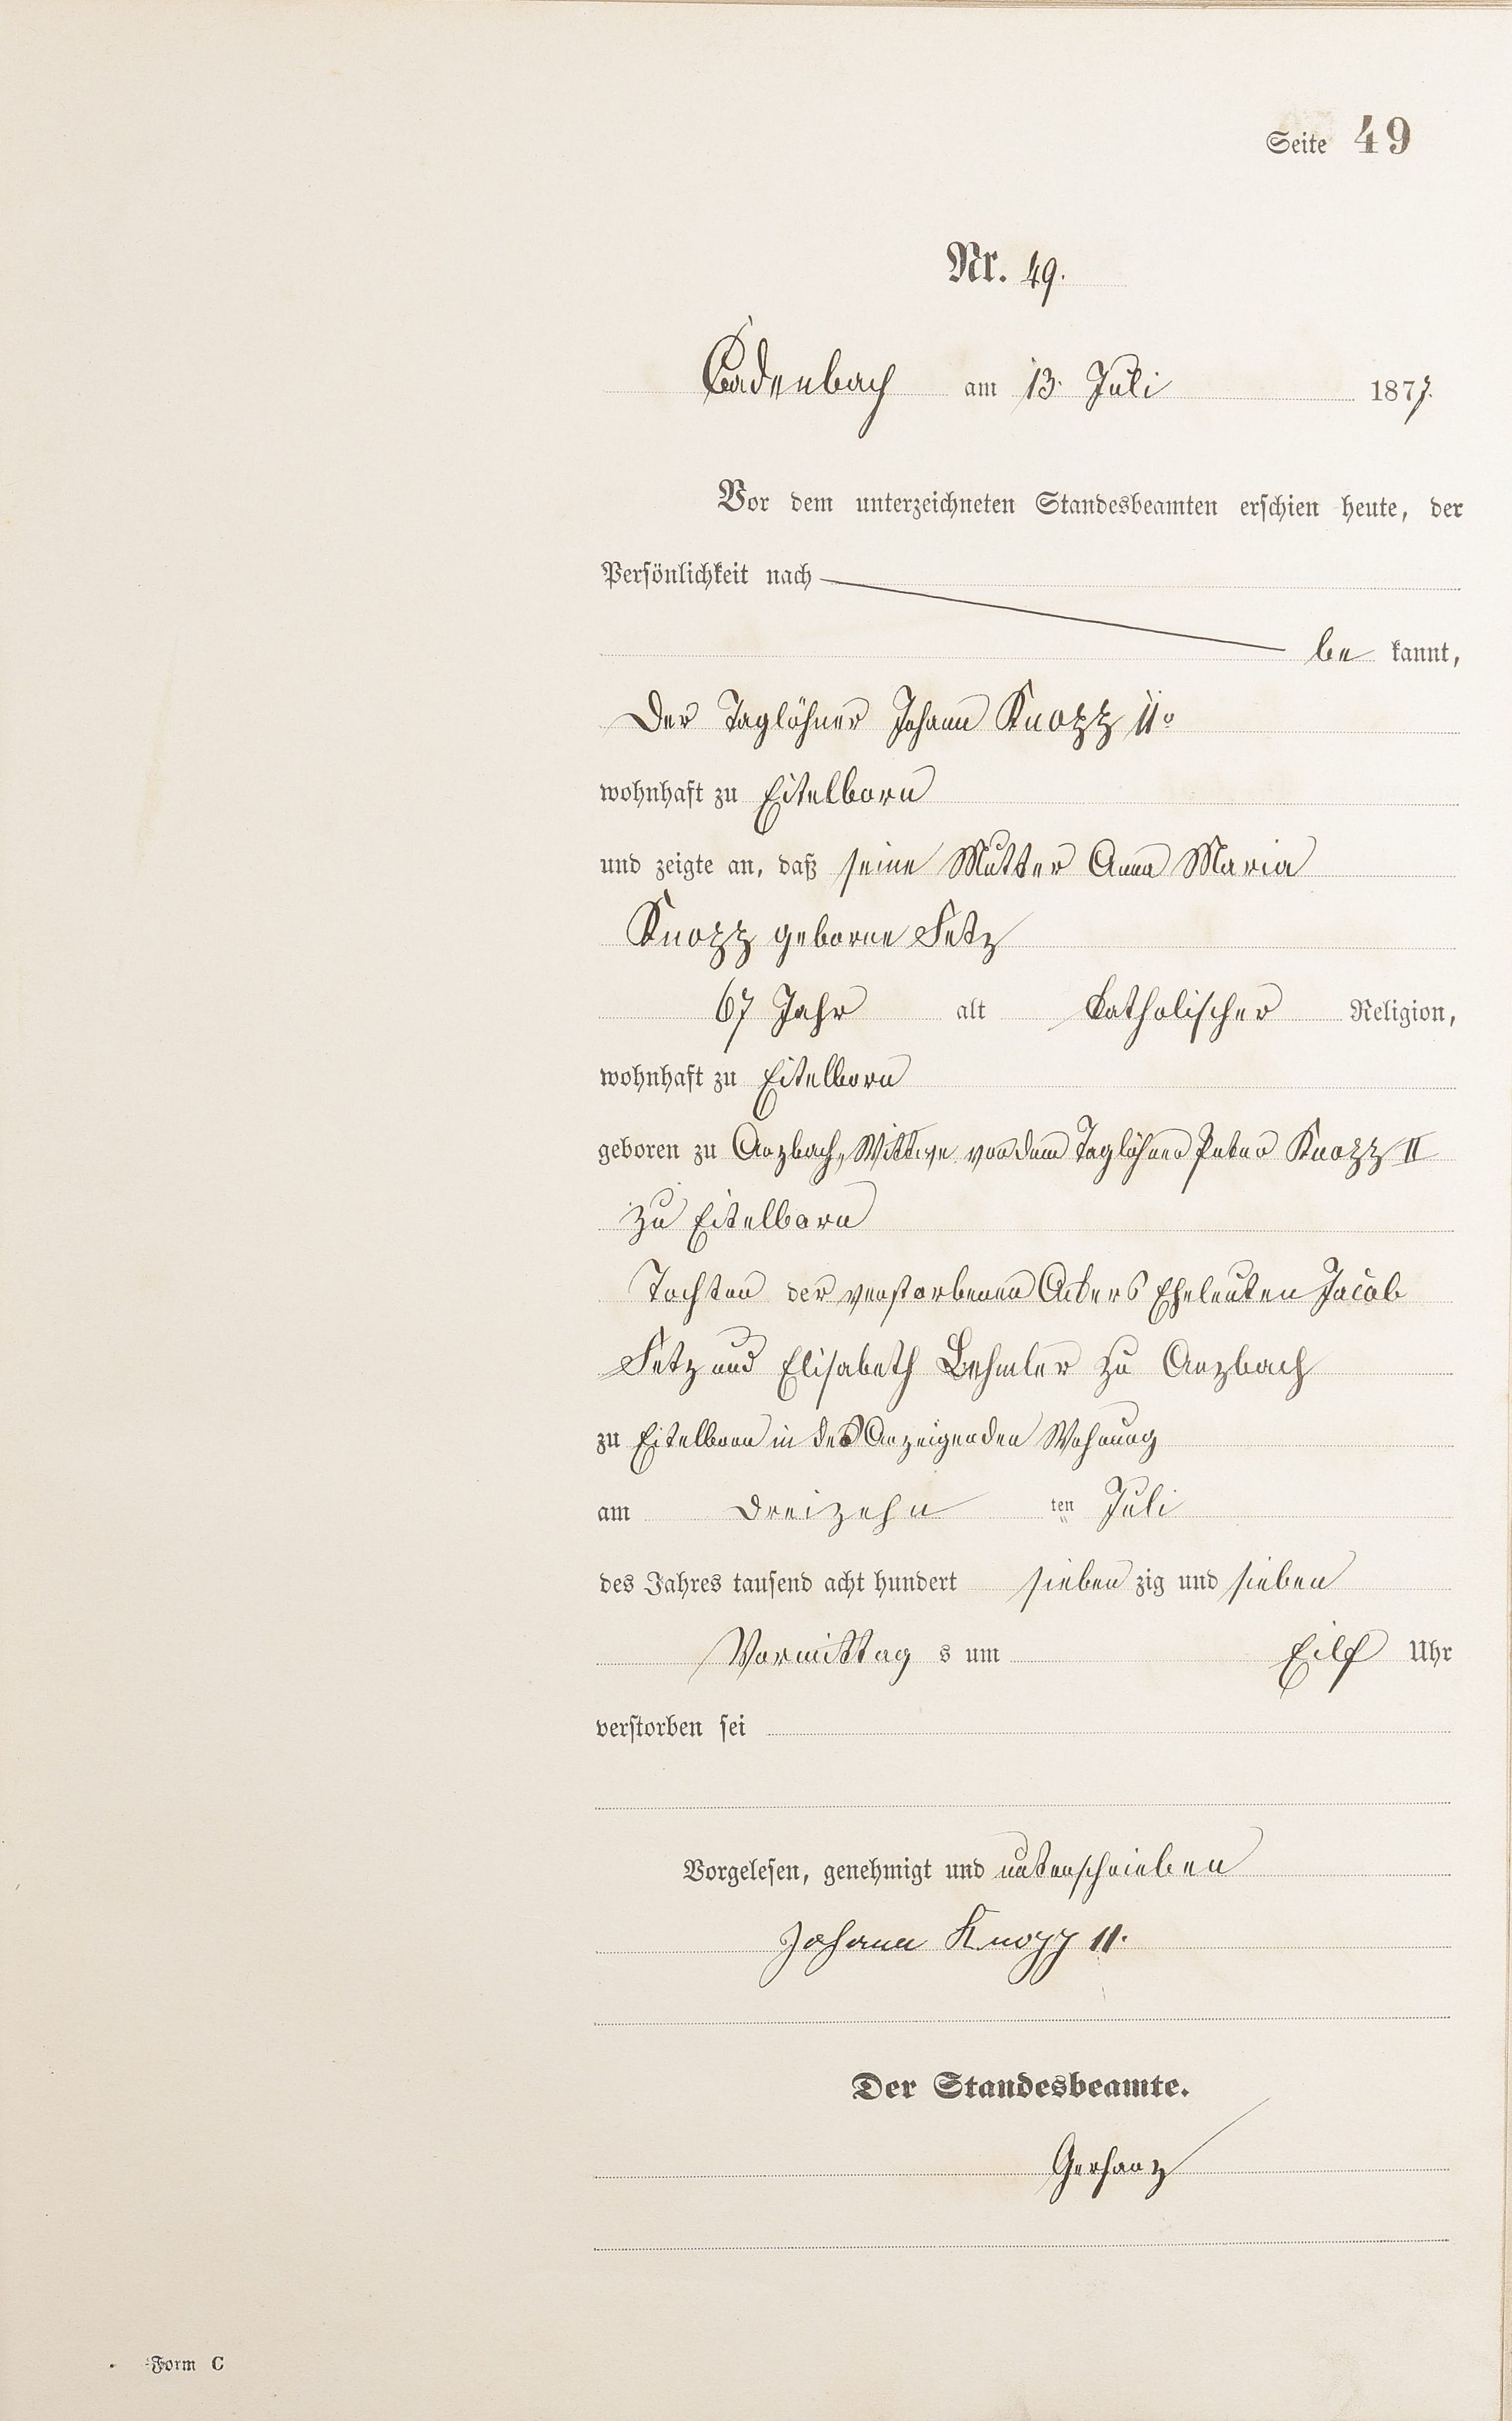 Seite 49
Nr. 49.
Cadenbach am 13. Juli 1877.
Vor dem unterzeichneten Standesbeamten erschien heute, der
Persönlichkeit nach
be kannt,
Der Taglöhner Johann Knopp II
wohnhaft zu Eitelborn
und zeigte an, daß seine Mutter Anna Maria
Knopp geborne Fetz
67 Jahr alt katholischer Religion,
wohnhaft zu Eitelborn
geboren zu Arzbach, Wittwe von dem Taglöhner Peter Knopp II
zu Eitelborn
Tochter der verstorbenen Ackers Eheleuten Jacob
Fetz und Elisabeth Lehmler zu Arzbach
zu Eitelborn in des Anzeigenden Wohnung
am dreizehn ten Juli
des Jahres tausend acht hundert sieben zig und sieben
Vormittag s um Eilf Uhr
verstorben sei
Vorgelesen, genehmigt und unterschrieben
Johann Knopp II.
Der Standesbeamte.
Gerharz
Form C